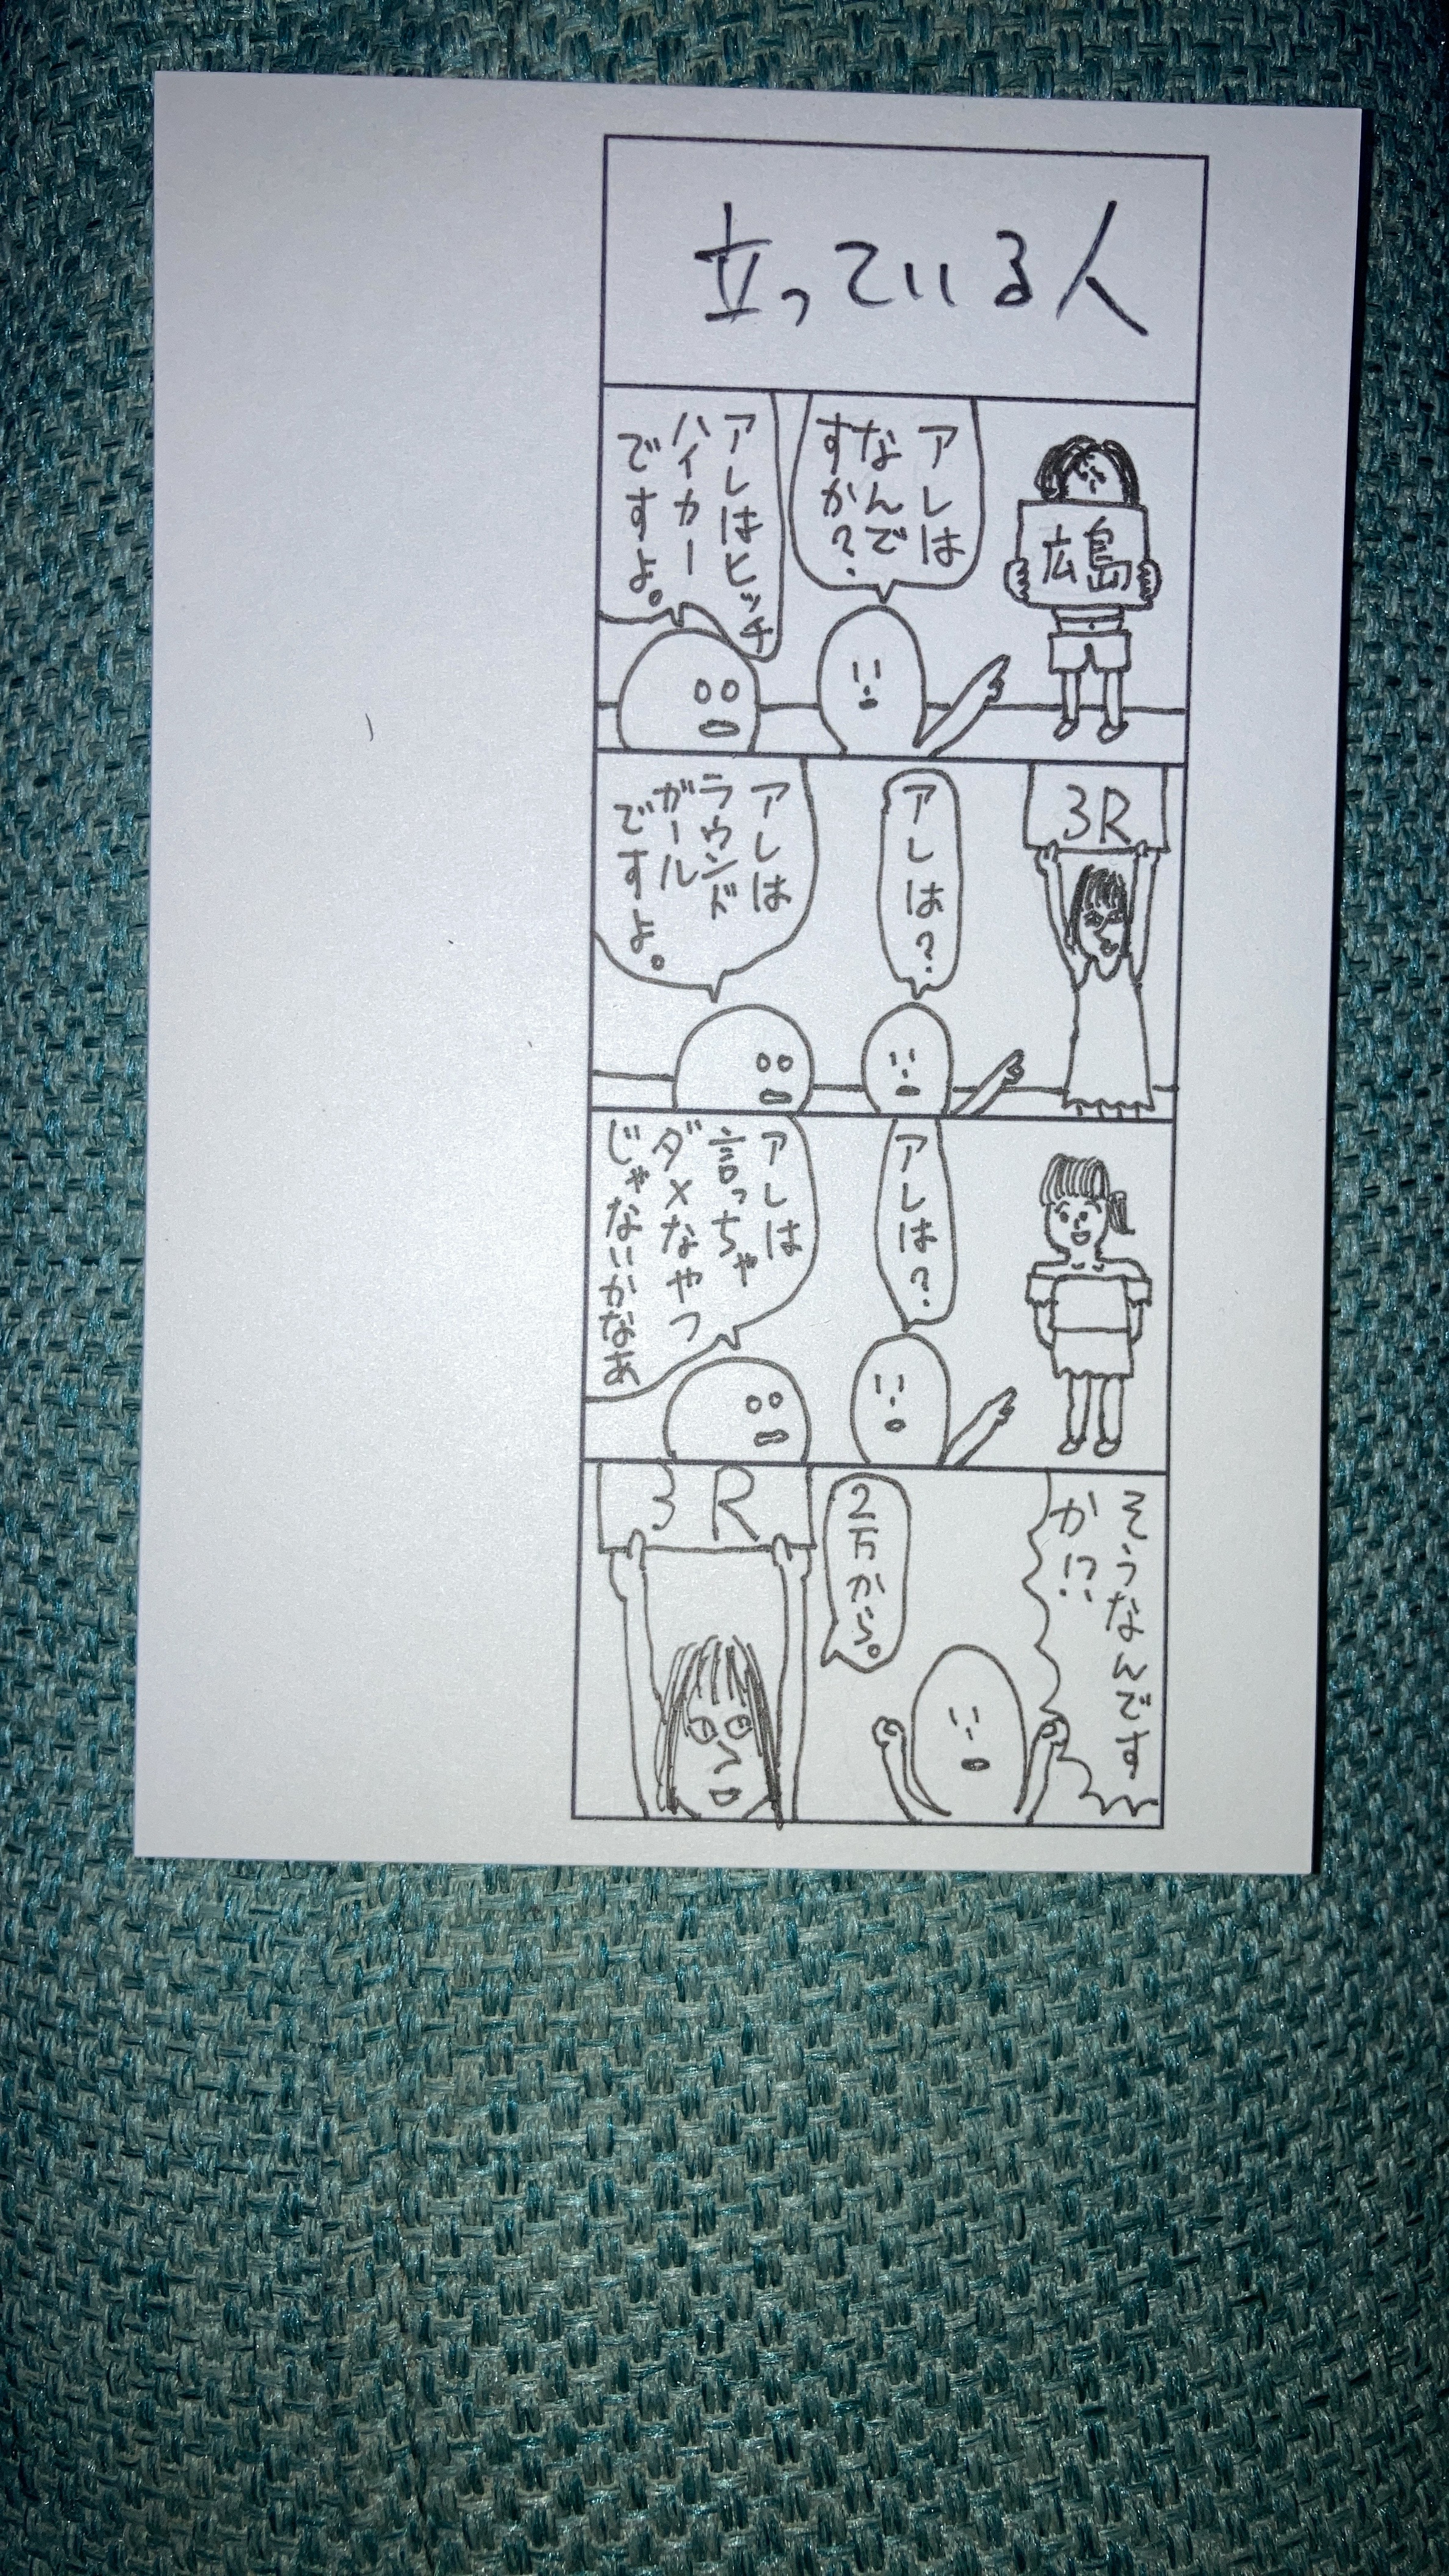 立っている人
広島
アレは
なんで
すか?
アレはヒッチ
ハイカー
ですよ。
3R
アレは?
アレは
ラウンド
ガール
ですよ。
アレは?
アレは
言っちゃ
ダメなやつ
じゃないかなあ
そうなんです
か!?
2万から。
3R